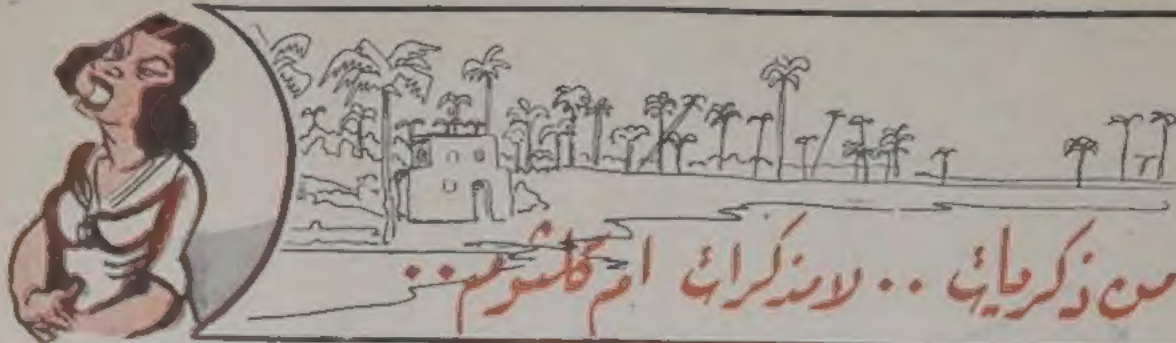 من ذكريات .. لا مذكرات ام كلثوم ..